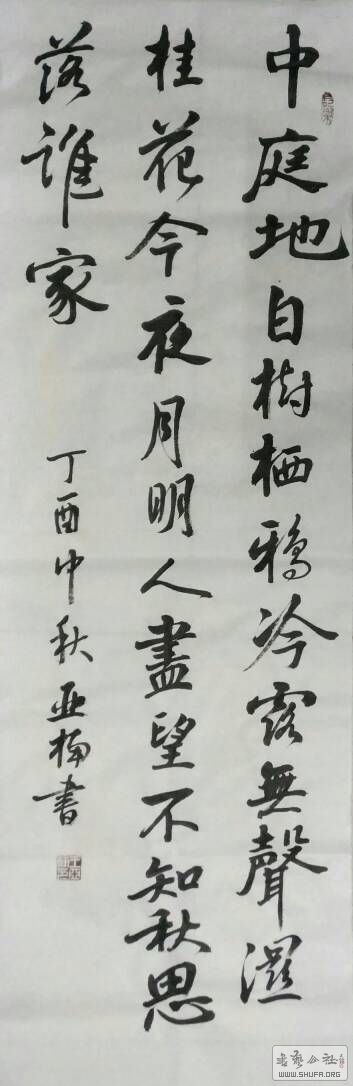 中庭地白樹栖鴉冷露無聲濕
桂花今夜月明人盡望不知秋思
落誰家
丁酉中秋亚楠書
书艺公社
WWW.SHUFA.ORG